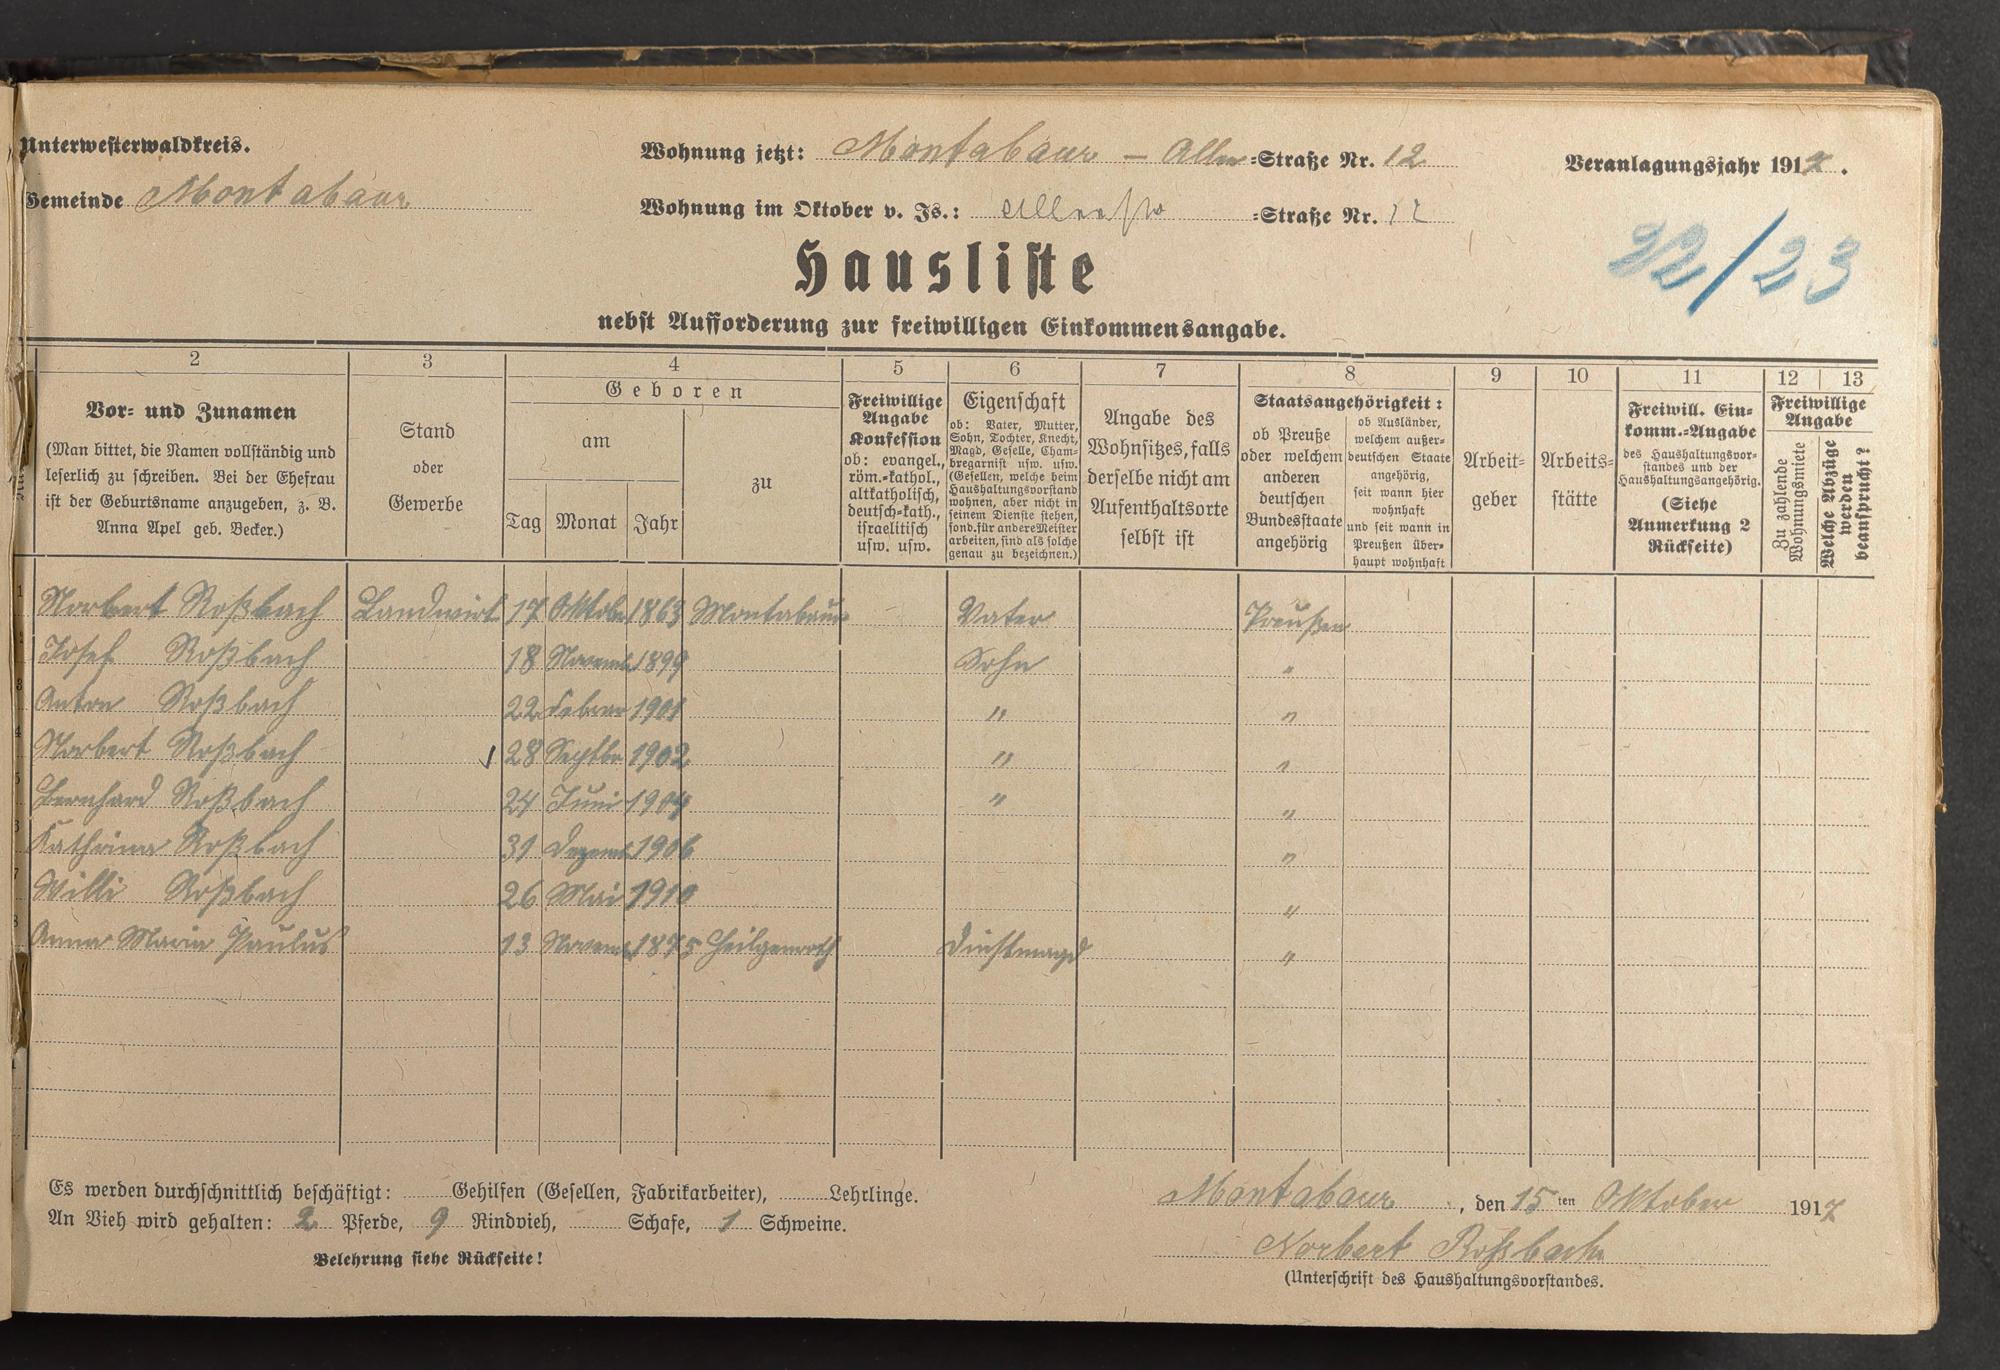 Unterwesterwaldkreis.
Gemeinde Montabaur
Wohnung jetzt: Montabaur – Aller=Straße Nr. 12
Wohnung im Oktober v. Js.: =Straße Nr. 12
Veranlagungsjahr 191
22/23
Hausliste
nebst Aufforderung zur freiwilligen Einkommensangabe.
2
Vor= und Zunamen
(Man bittet, die Namen vollständig und
leserlich zu schreiben. Bei der Ehefrau
ist der Geburtsname anzugeben, z. B.
Anna Apel geb. Becker.)
3
Stand
oder
Gewerbe
4
Geboren
am
zu
Tag Monat Jahr
5
Freiwillige
Angabe
Konfession
ob: evangel.,
röm.-kathol.,
altkatholisch,
deutsch-kath.,
israelitisch
usw. usw.
6
Eigenschaft
ob: Vater, Mutter,
Sohn, Tochter, Knecht,
Magd, Geselle, Cham=
bregarnist usw. usw.
(Gesellen, welche beim
Haushaltungsvorstand
wohnen, aber nicht in
seinem Dienste stehen,
sond. für andere Meister
arbeiten, sind als solche
genau zu bezeichnen.)
7
Angabe des
Wohnsitzes, falls
derselbe nicht am
Aufenthaltsorte
selbst ist
8
Staatsangehörigkeit:
ob Preuße
oder welchem
anderen
deutschen
Bundesstaate
angehörig
ob Ausländer,
welchem außer=
deutschen Staate
angehörig,
seit wann hier
wohnhaft
und seit wann in
Preußen über=
haupt wohnhaft
9
Arbeit=
geber
10
Arbeits=
stätte
11
Freiwill. Ein=
komm.=Angabe
des Haushaltungsvor=
standes und der
Haushaltungsangehörig.
(Siehe
Anmerkung 2
Rückseite)
12 13
Freiwillige
Angabe
Zu zahlende
Wohnungsmiete
Welche Abzüge
werden
beansprucht?
1 Norbert Roßbach Landwirt 17 Oktober 1863 Montabaur Vater Preußen
2 Josef Roßbach 18 Novemb 1899 Sohn "
3 Anton Roßbach 22 Februar 1901 " "
4 Norbert Roßbach 28 Septbr 1902 " "
5 Bernhard Roßbach 24 Juni 1904 " "
Kathrina Roßbach 31 Dezemb 1906 "
7 Willi Roßbach 26 Mai 1910 "
8 Anna Maria Paulus 13 Novemb 1875 Heilgenroth Dienstmagd "
Es werden durchschnittlich beschäftigt: Gehilfen (Gesellen, Fabrikarbeiter), Lehrlinge.
An Vieh wird gehalten: 2 Pferde, 9 Rindvieh, Schafe, 1 Schweine.
Belehrung siehe Rückseite!
Montabaur, den 15ten Oktober 1917
Norbert Roßbach
(Unterschrift des Haushaltungsvorstandes.